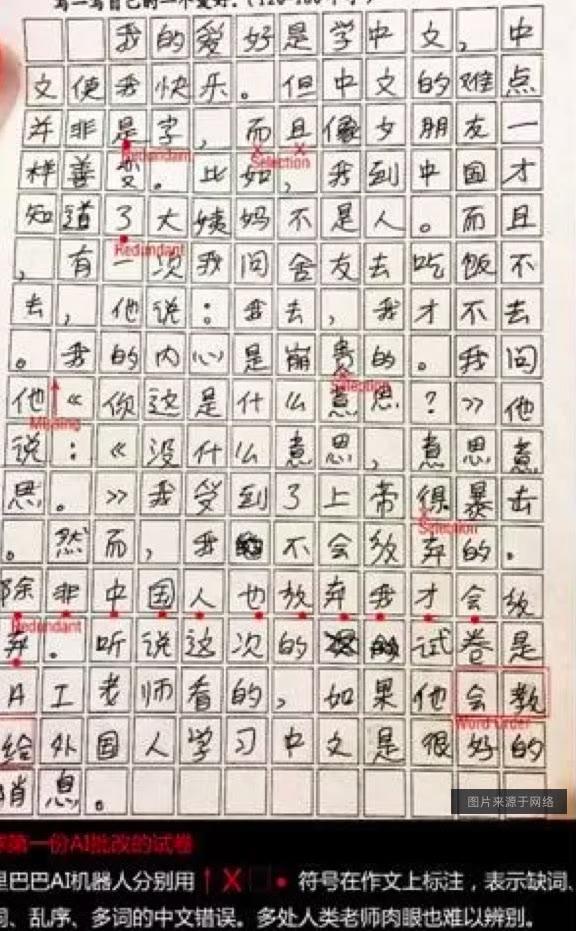 写一写自己的一个爱好。(120-160个字)
我的爱好是学中文,中
文使我快乐。但中文的难点
并非是字,而且像女朋友一
Redundant
Selection
样善变。比如,我到中国才
知道了大姨妈不是人。而且
Redundant
,有一次我问舍友去吃饭不
去,他说:我去,我才不去
。我的内心是崩贵的。我问
Selection
他《你这是什么意思?》他
Missing
说:《没什么意思,意思意
思。》我受到了上帝得暴击
Selection
。然而,我不会放弃的。
除非中国人也放弃我才会放
Redundant
弃。听说这次的试卷是
AI老师看的,如果他会教
Word Order
给外国人学习中文是很好的
消息。
图片来源于网络
第一份AI批改的试卷
里巴巴AI机器人分别用 ↑ X □ • 符号在作文上标注,表示缺词、
词、乱序、多词的中文错误。多处人类老师肉眼也难以辨别。